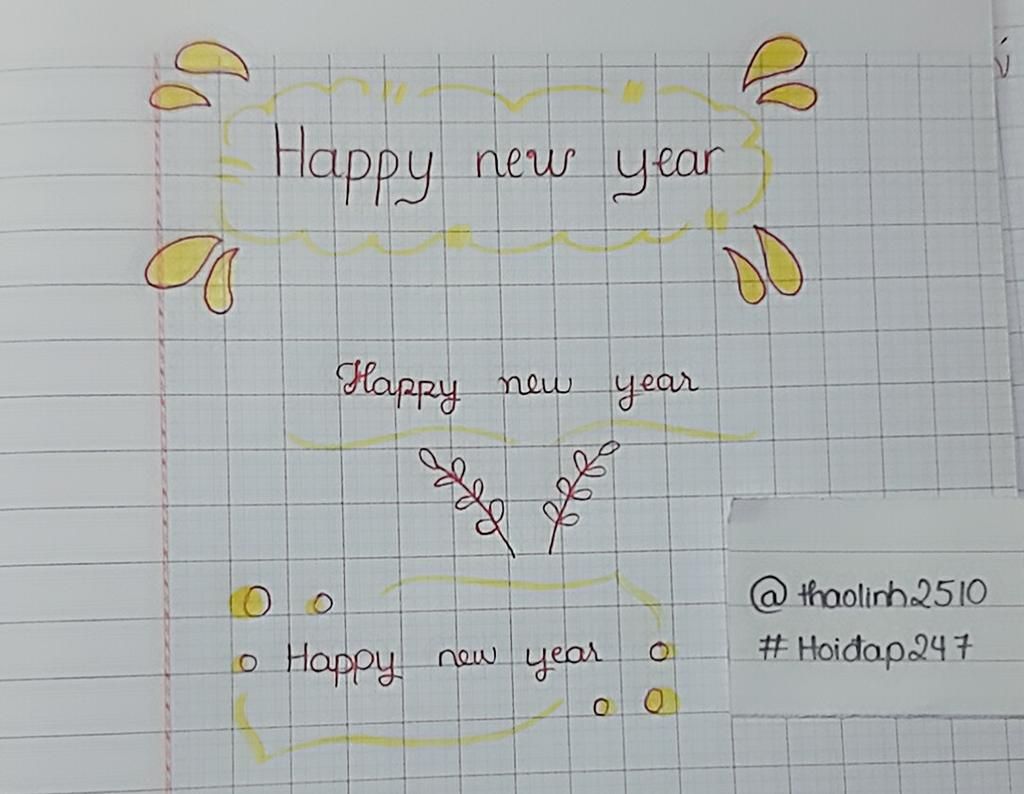 Happy new year
Happy new year
Happy new year
@thaolinh2510
# Hoidap247